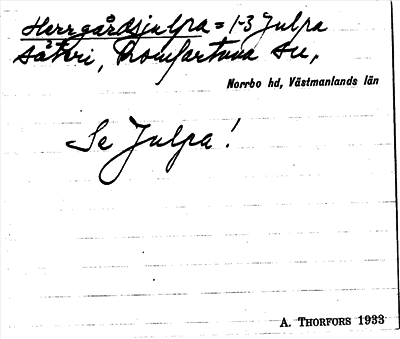 Herrgårdsjulpa = 1-3 Julpa
säteri, Romfartuna sn,
Norrbo hd, Västmanlands län
Se Julpa!
A. THORFORS 1933